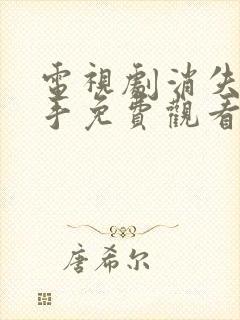 電視劇消失
手免費觀看
唐希尔